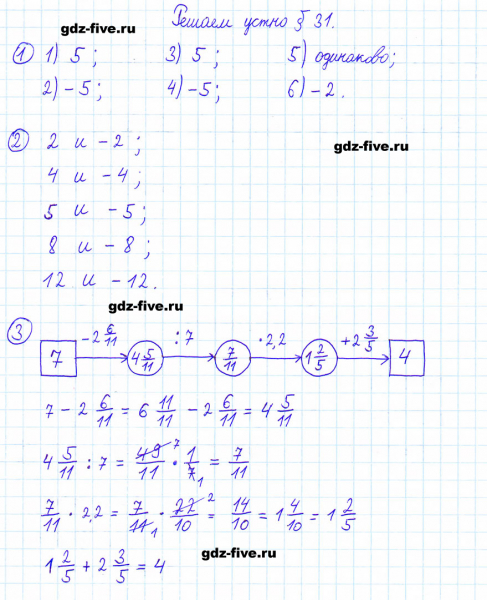 gdz-five.ru
Решаем устно § 31.
① 1) 5; 3) 5; 5) одинаково;
2) -5; 4) -5; 6) -2.
② 2 и -2;
gdz-five.ru
4 и -4;
5 и -5;
8 и -8;
12 и -12.
gdz-five.ru
③ 7 -2 6/11 4 5/11 : 7 7/11 · 2,2 1 2/5 +2 3/5 4
7 - 2 6/11 = 6 11/11 - 2 6/11 = 4 5/11
4 5/11 : 7 = 49/11 7 · 1/7 1 = 7/11
7/11 · 2,2 = 7/11 1 · 22/10 2 = 14/10 = 1 4/10 = 1 2/5
gdz-five.ru
1 2/5 + 2 3/5 = 4